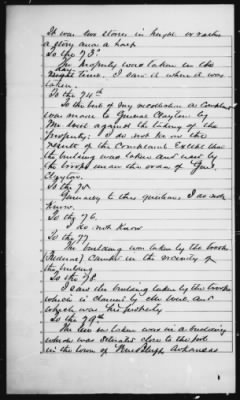 It was two stories in height or rather
a story and a half
To the 73d
The property was taken in the
day
Night time. I saw it when it was
taken.
To the 74th
To the best of my recollection a Complaint
was made to General Clayton by
against the taking of the
property; I do not know the
result of the Complaint Except that
the building was taken and used by
the troops under the order of Genl
Clayton.
To the 75
Generally to these questions I do not
Know.
To thy 76.
I do not Know
To thy 77
The building was taken by the troops
(Federal) Camped in the vicinity of
the building
To the 78.
I saw the building taken by the troops
which is claimed by and
which was his property
To the 79th
The taken was in a building
which was situated close to the
in the town of Pine Bluff Arkansas